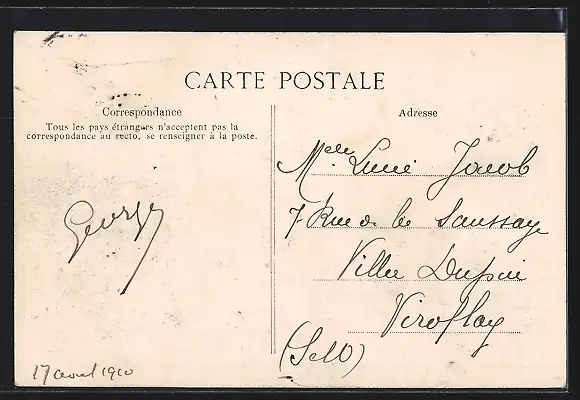 CARTE POSTALE
Correspondance
Tous les pays étrangers n'acceptent pas la
correspondance au recto, se renseigner à la poste.
Georges
17 aout 1910
Adresse
Melle Lucie Jacob
7 Rue de la Saussaye
Villa
Viroflay
(S et O)